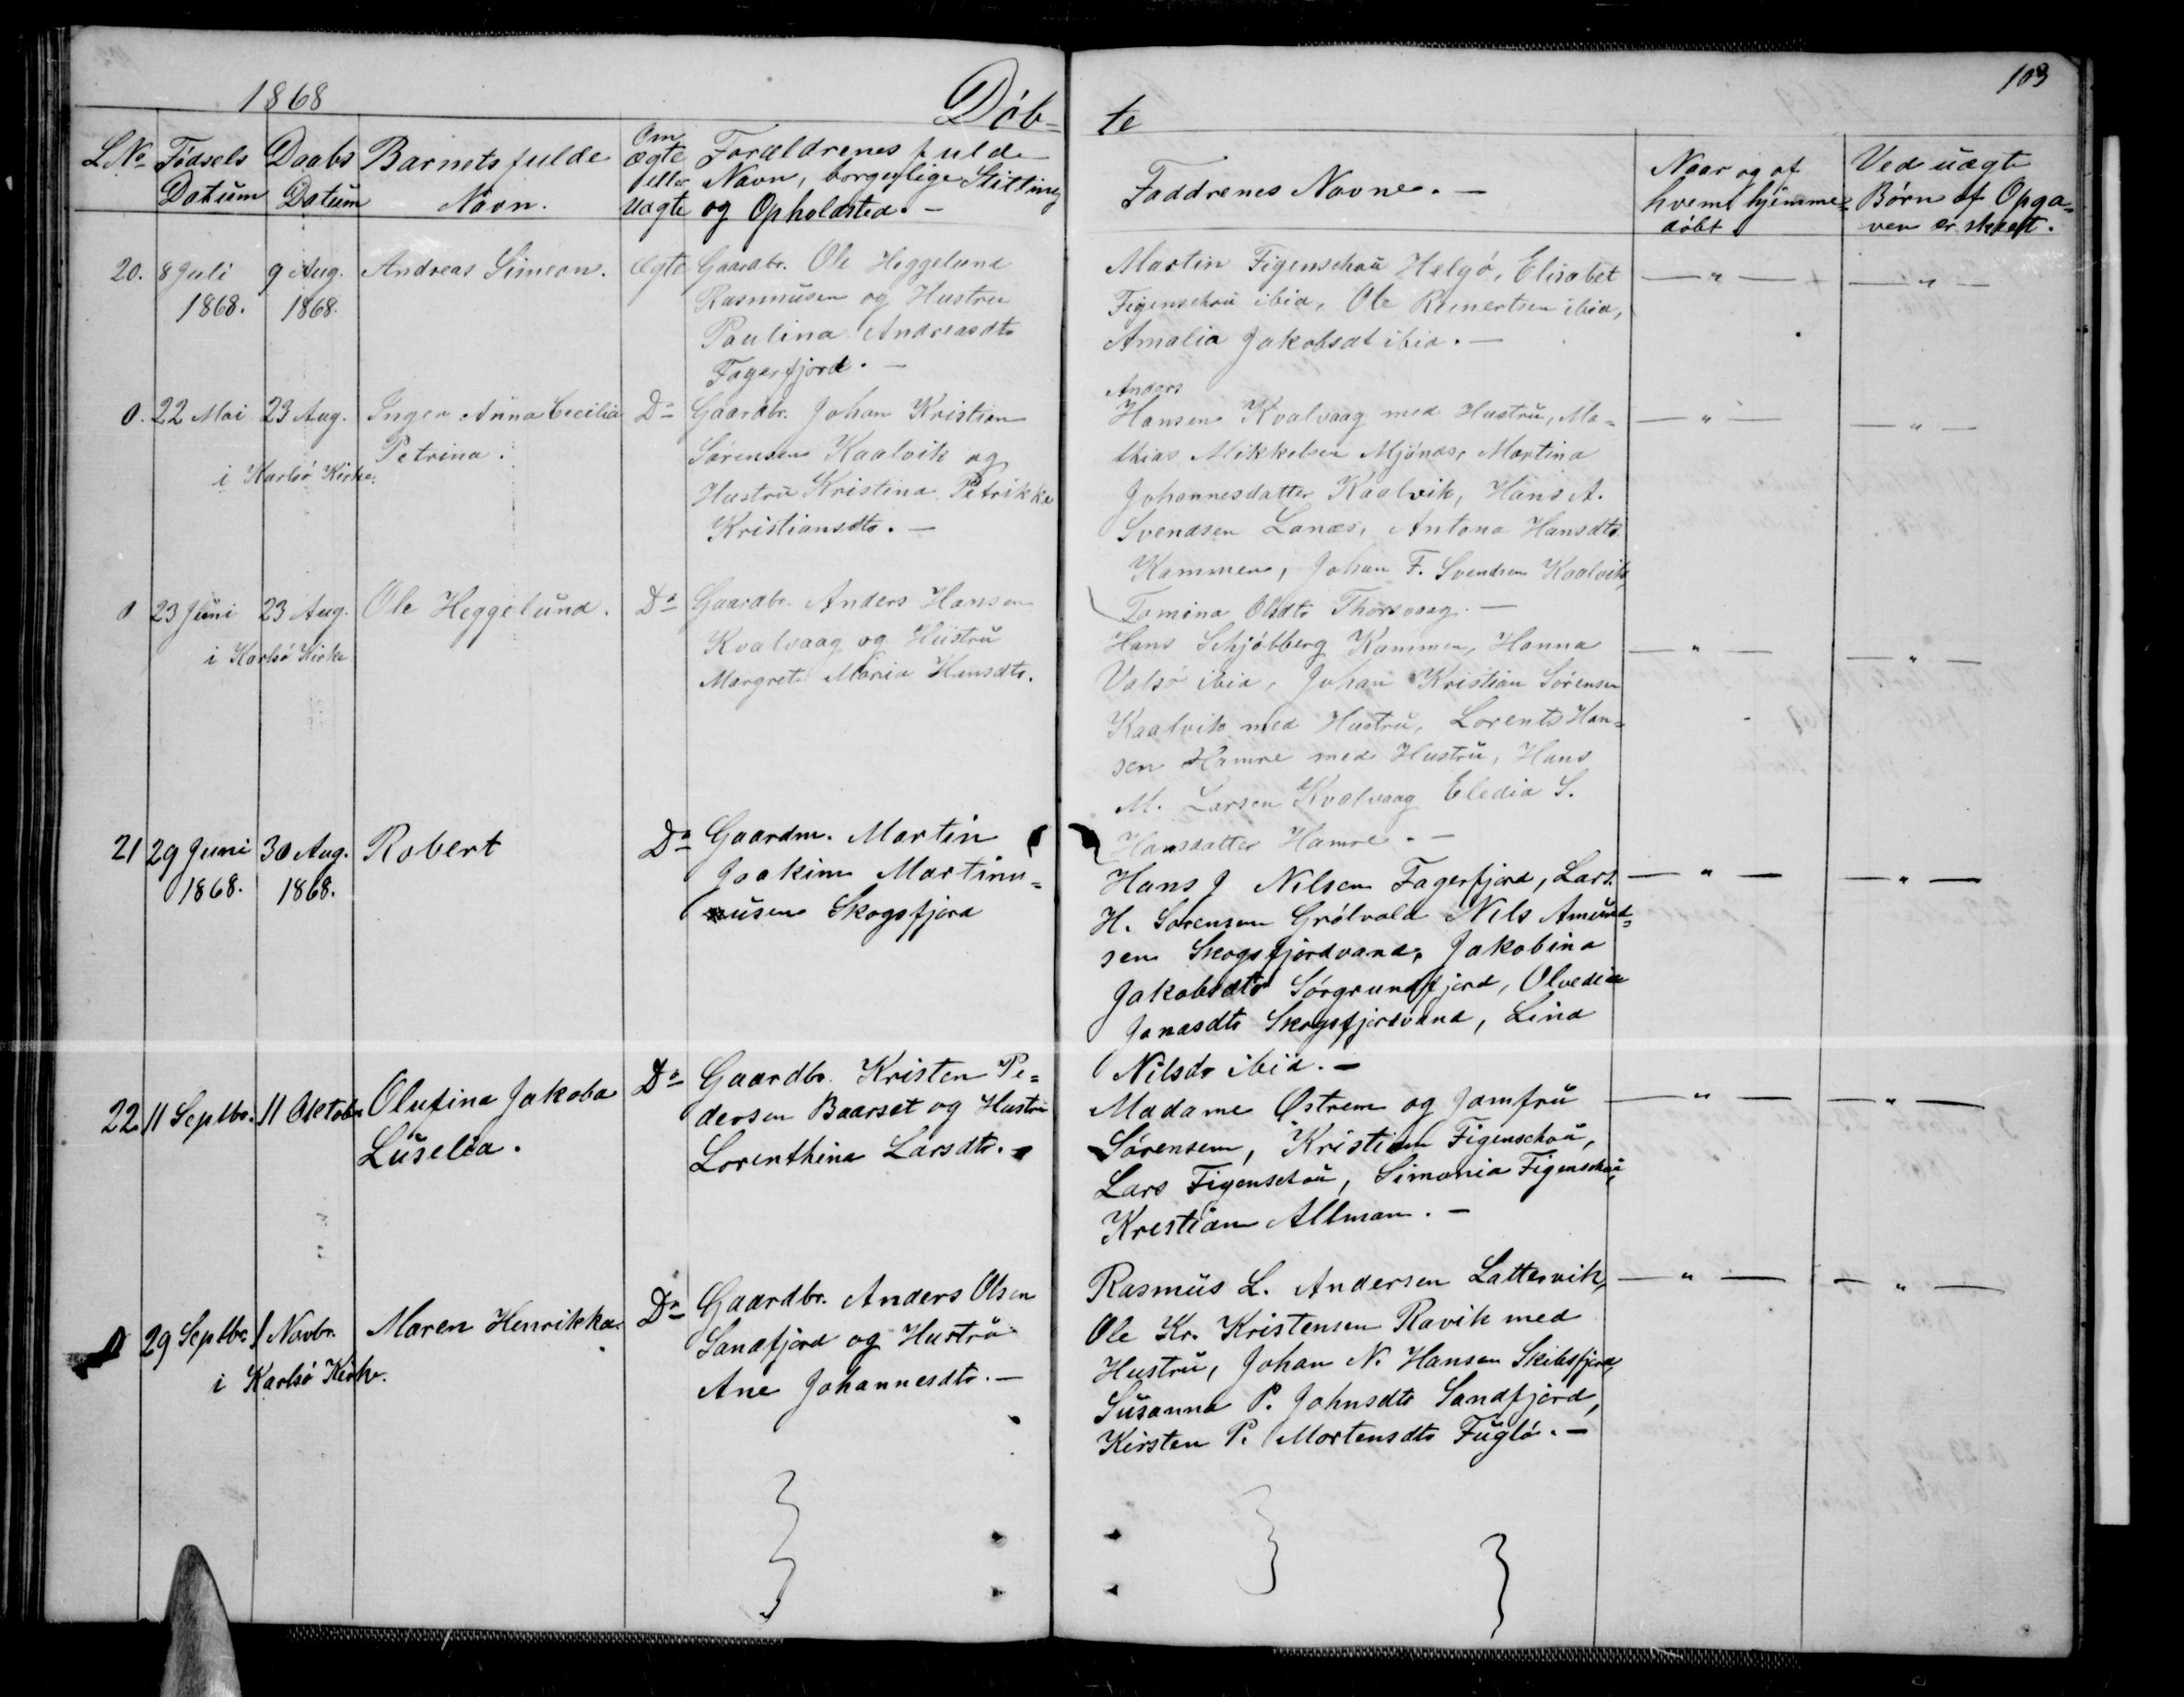 1868
Döb-
te
103
L.No
Födsels Datum
Daabs Datum
Barnets fulde Navn.
Om ægte eller uægte
Forældrenes fulde Navn, borgerlige Stilling og Opholdsted. —
Faddrenes Navne. —
Naar og af hvem hjemme- döbt.
Ved uægte Börn af Opga- ven er skeet.
20.
8 Juli 1868.
9 Aug. 1868.
Andreas Simeon.
Ægte
Gaardbr. Ole Heggelund
Rasmusen og Hustru
Paulina Andreasdtr
Fagerfjord. —
Martin Figenschou Helgö, Elisabet
Figenschou ibid, Ole Reinertsen ibid,
Amalia Jakobsdt ibid. —
— " —
— " —
0.
22 Mai
23 Aug.
i Karlsö Kirke.
Inger Anna Cecilia
Petrina.
Do
Gaardbr. Johan Kristian
Sörensen Kaalvik og
Hustru Kristina Petrikke
Kristiansdtr. —
Anders
Hansen Kvalvaag med Hustru, Ma-
thias Mikkelsen Mjönæs, Martina
Johannesdatter Kaalvik, Hans A.
Svendsen Lanæs, Antona Hansdtr
Kammen, Johan F. Svendsen Kaalvik,
Tomina Olsdtr Thorsvaag. —
— " —
— " —
0
23 Juni
23 Aug.
i Karlsö Kirke
Ole Heggelund.
Do
Gaardbr. Anders Hansen
Kvalvaag og Hustru
Margrete Maria Hansdtr.
Hans Schjöbberg Kammen, Hanna
Valsö ibid, Johan Kristian Sörensen
Kaalvik med Hustru, Lorents Han-
sen Hamre med Hustru, Hans
M. Larsen Kvalvaag Eledia S.
Hansdatter Hamre. —
— " —
— " —
21
29 Juni 1868.
30 Aug. 1868.
Robert
Do
Gaardm. Martin
Joakim Martinu-
usen Skogsfjord
Hans J Nilsen Fagerfjord, Lars
H. Sörensen Grölvold Nils Amund-
sen Skogsfjordvand, Jakobina
Jakobsdtr Sörgrundfjord, Olvedia
Jonasdtr Skogsfjordvand, Lina
Nilsdr ibid. —
— " —
— " —
22
11 Septbr.
11 Oktobr
Olufina Jakoba
Luselia.
Do
Gaardbr. Kristen Pe-
dersen Baarset og Hustru
Lorenthina Larsdtr. —
Madame Østrem og Jomfru
Sörensen, Kristian Figenschou,
Lars Figenschou, Simonia Figenschou,
Kristian Allman. —
— " —
— " —
0
29 Septbr
1 Novbr.
i Karlsö Kirke.
Maren Henrikka.
Do
Gaardbr. Anders Olsen
Sandfjord og Hustru
Ane Johannesdtr. —
Rasmus L. Andersen Lattervik,
Ole Kr. Kristensen Ravik med
Hustru, Johan N. Hansen Skibsfjord,
Susanna P. Johnsdtr Sandfjord,
Kirsten P. Mortensdtr Fuglö. —
— " —
— " —